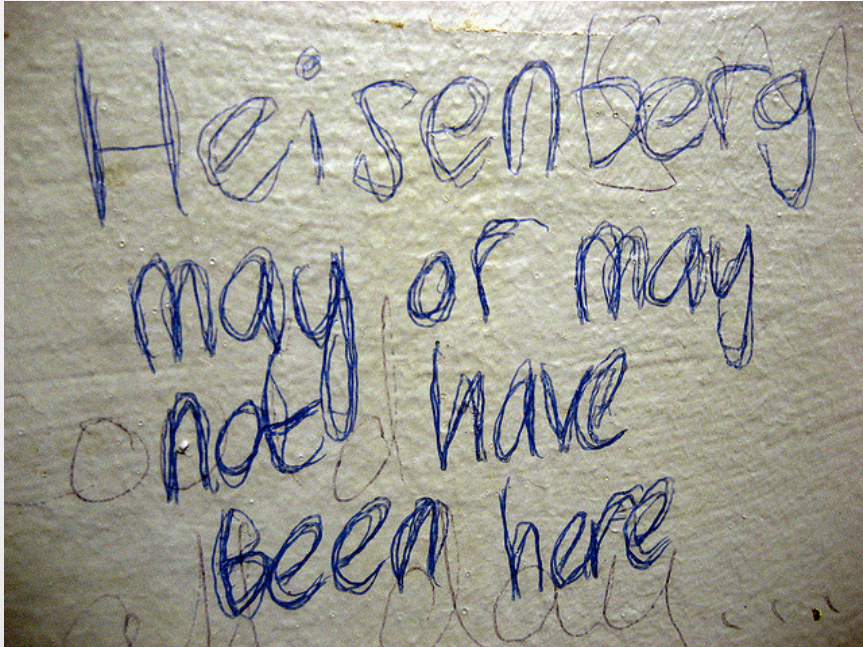 Heisenberg
may or may
not have
Been here